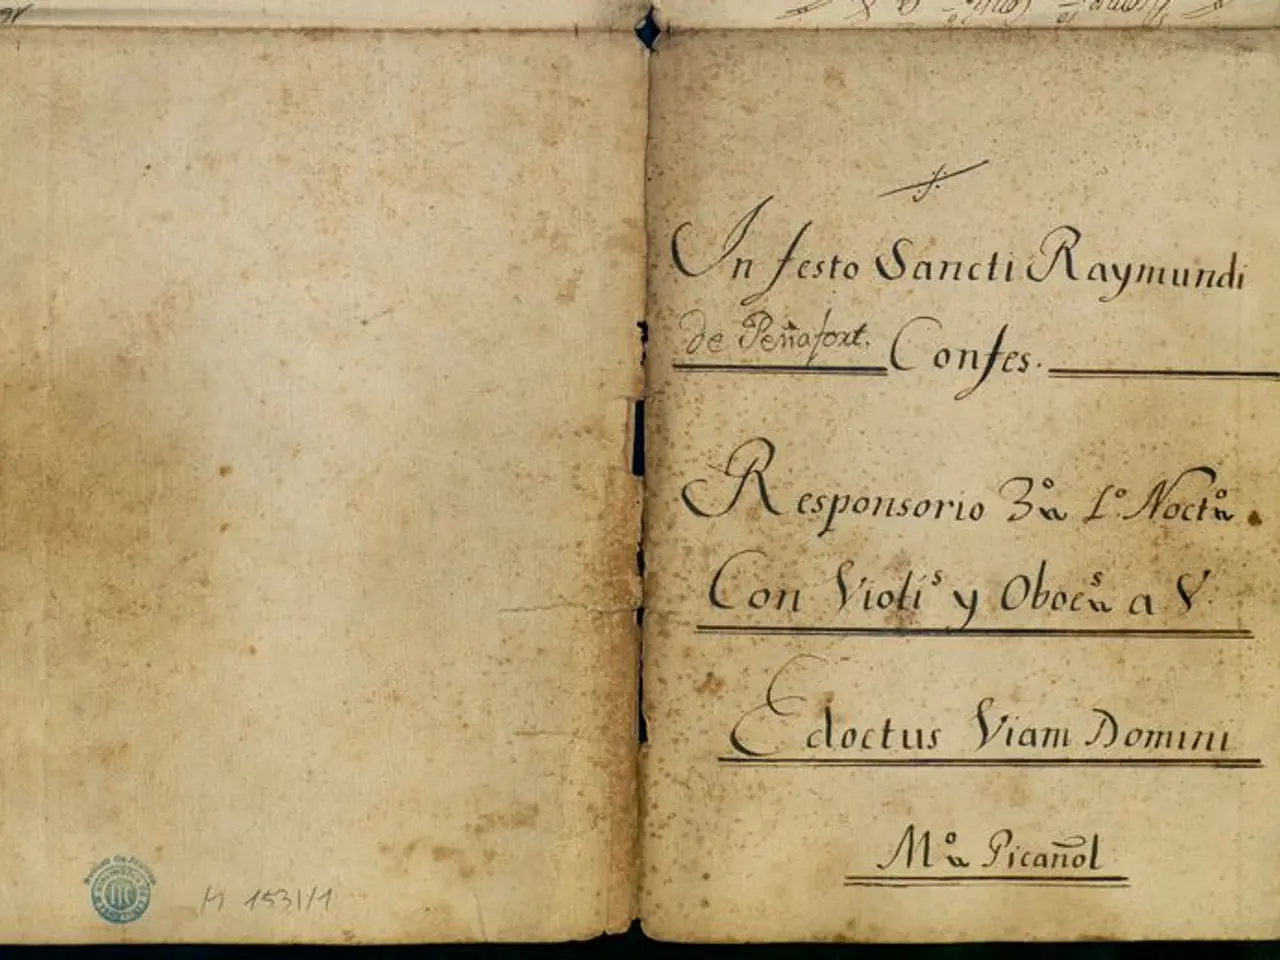 In festo Sancti Raymundi
de Peñafort. Confes.
Responsorio 3º 1º Noctº
Con Violiˢ y Oboeˢ a V.
Edoctus Viam Domini
Mº Picañol
M 1531/1